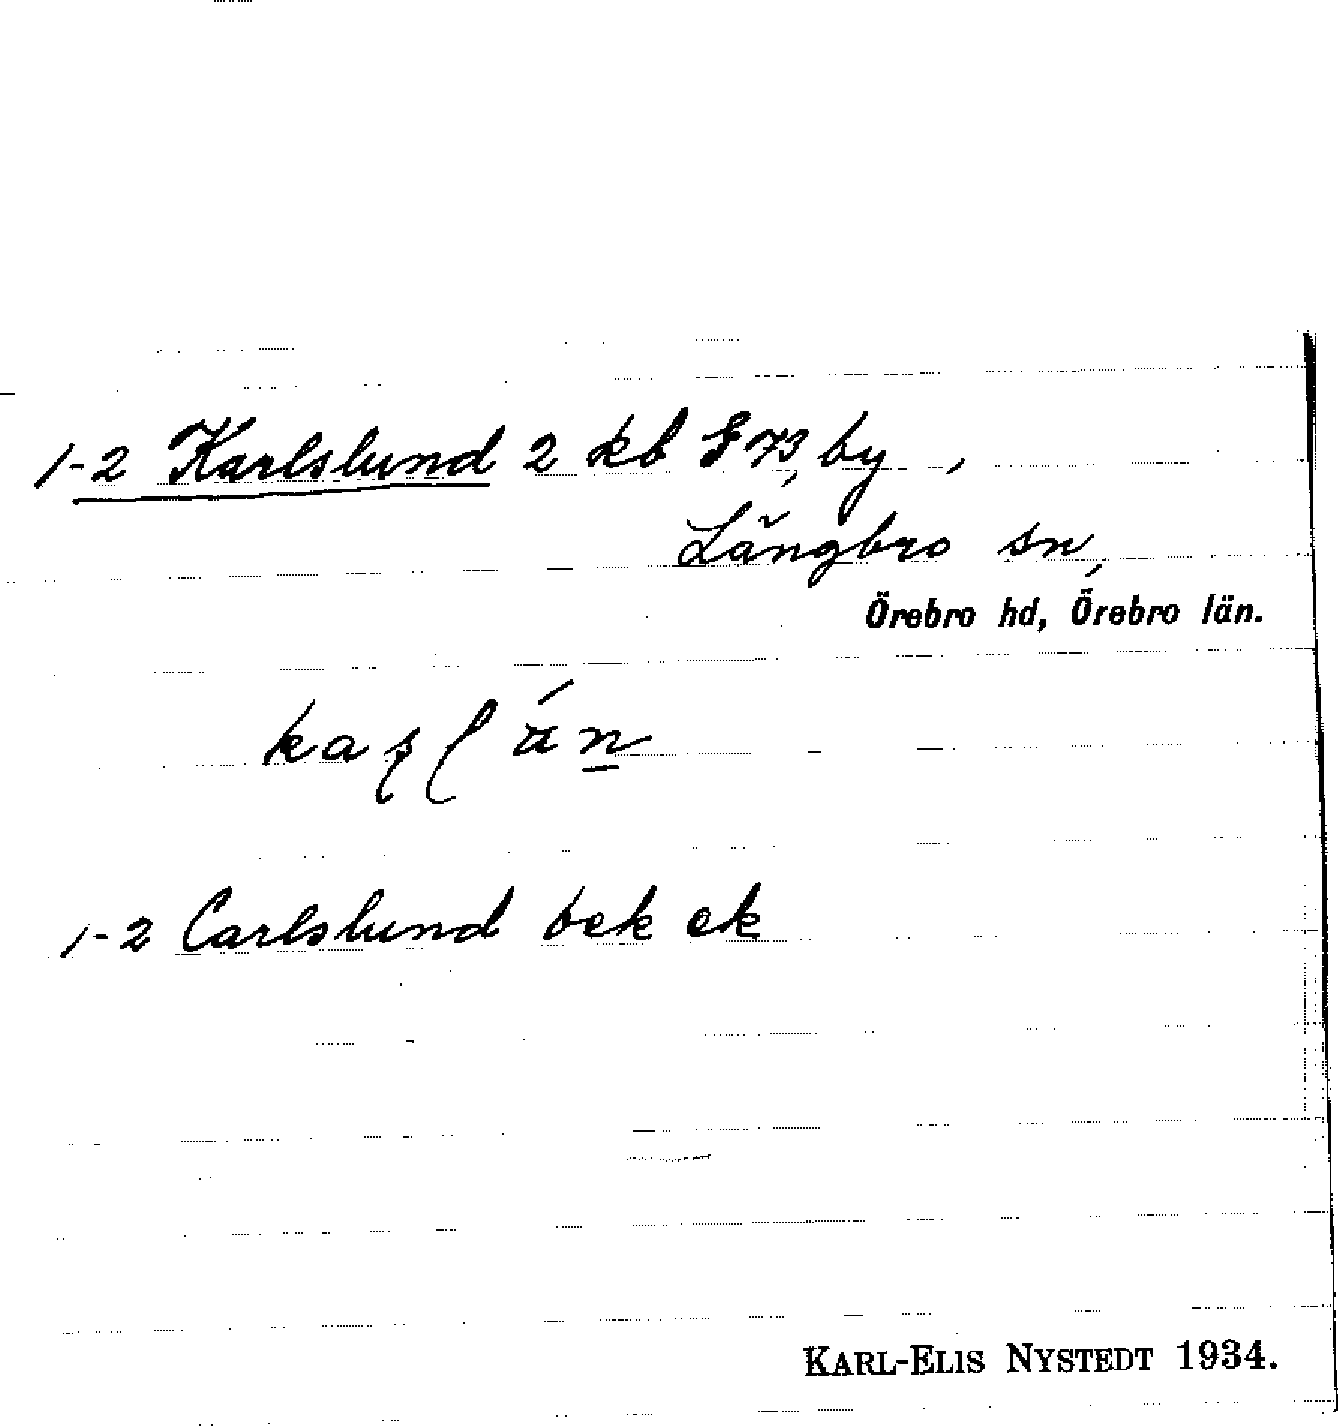 1-2 Karlslund 2 kb F 73, by,
Långbro sn,
Örebro hd, Örebro län.
1-2 Carlslund bek ek
KARL-ELIS NYSTEDT 1934.